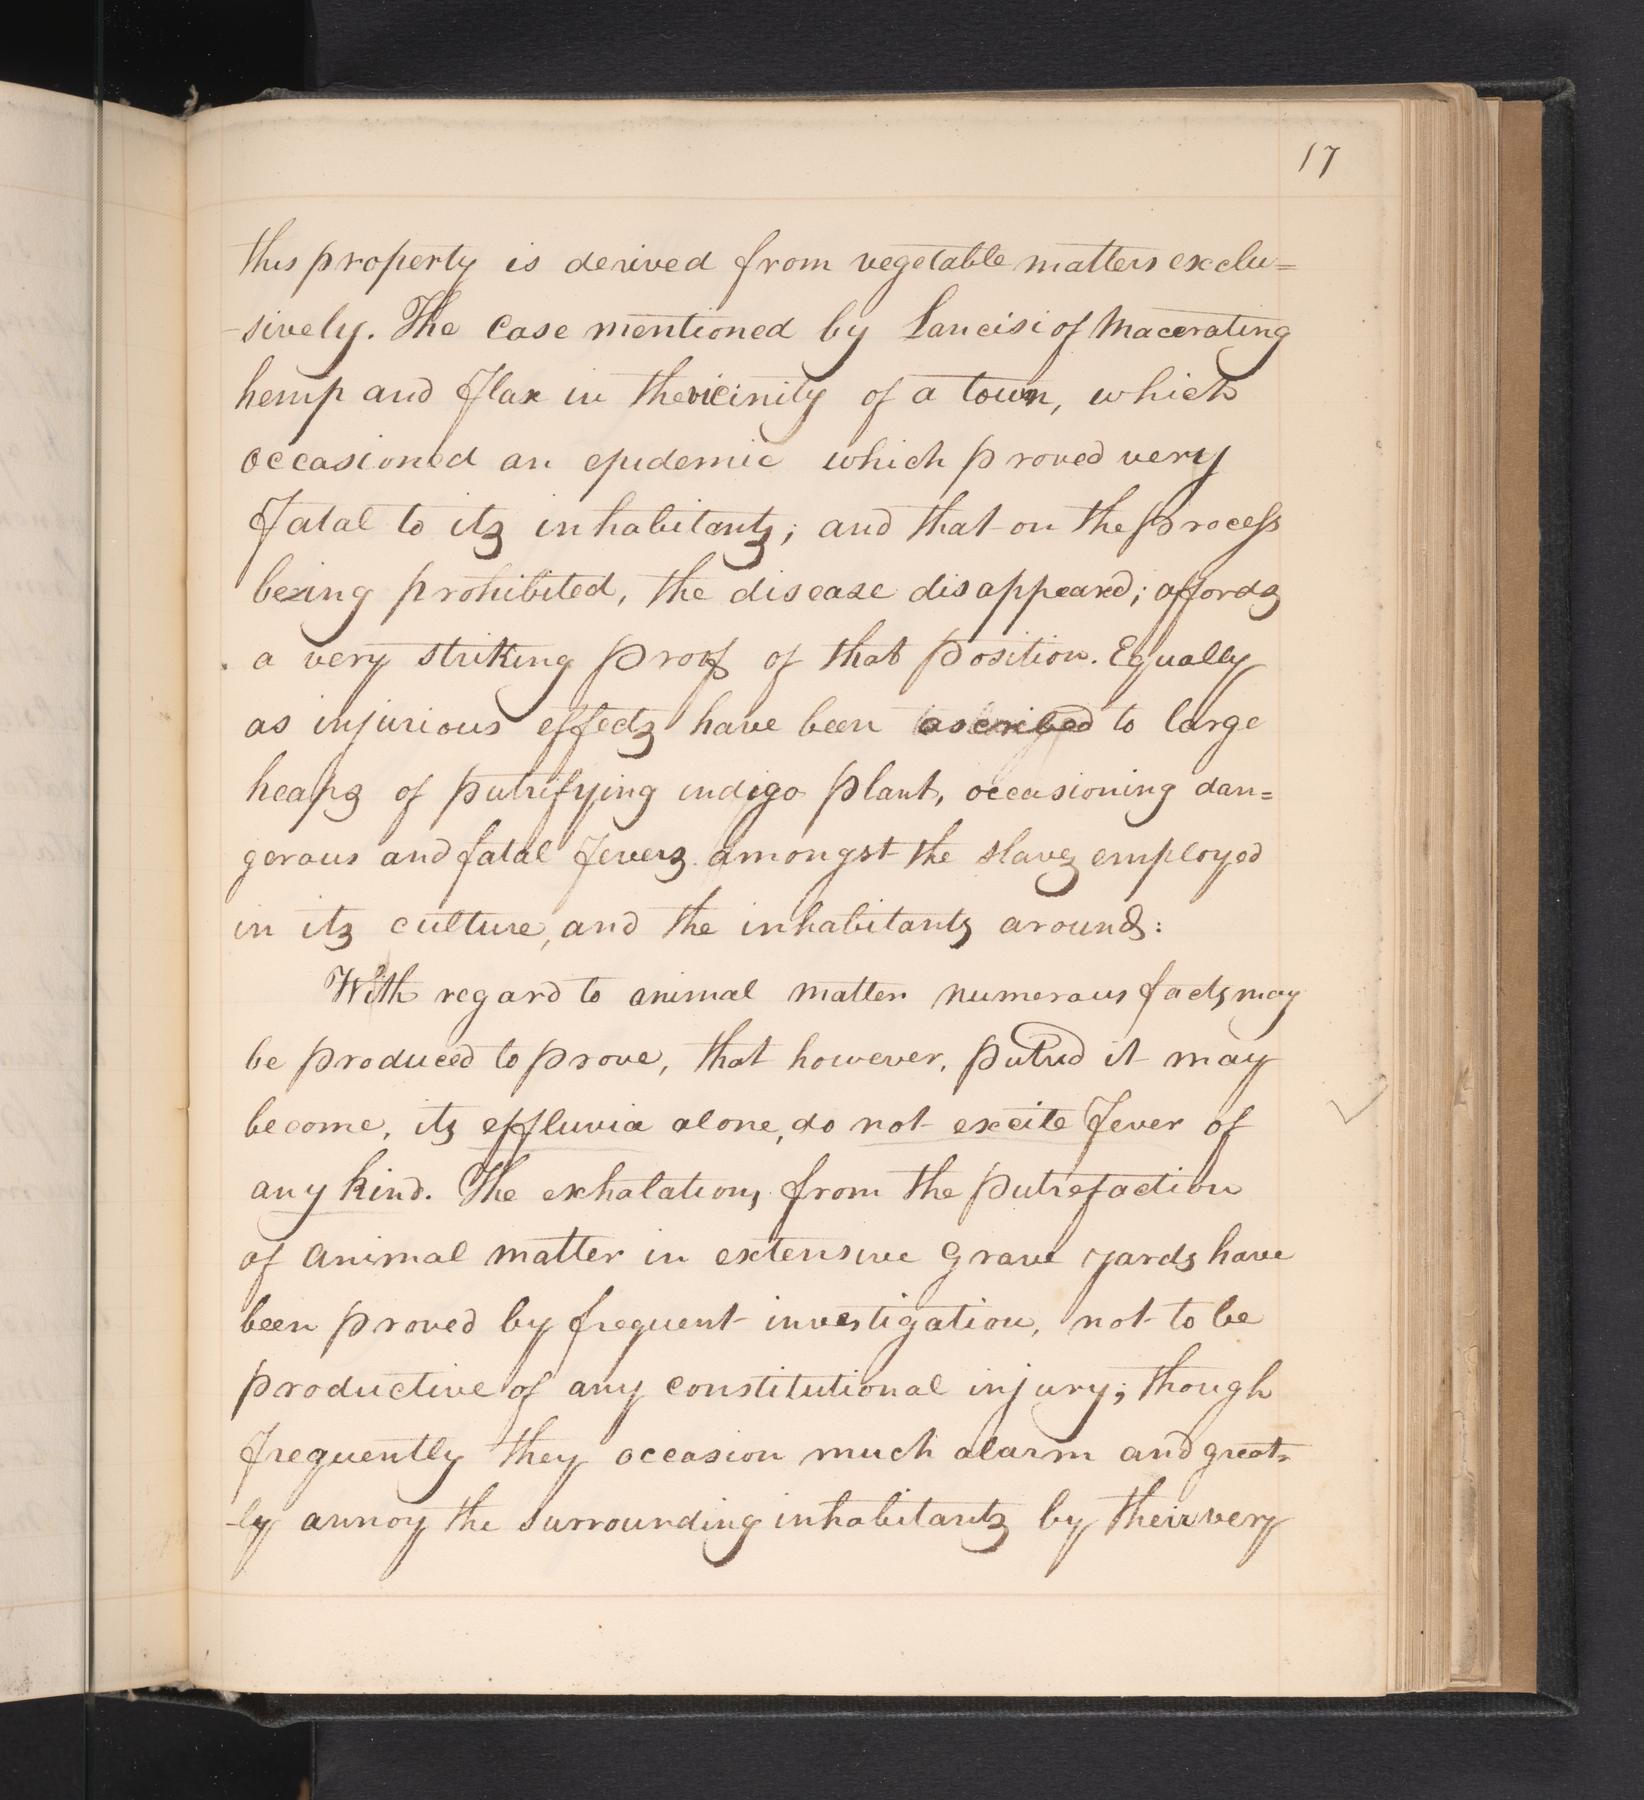 17
this property is derived from vegetable matters exclu=
-sively. The Case mentioned by Lancisi of Macerating
hemp and Flax in the vicinity of a town, which
occasioned an epidemic which proved very
Fatal to its inhabitants; and that on the process
being prohibited, the disease disappeared; affords
a very striking proof of that position. Equally
as injurious effects have been ascribed to large
heaps of putrifying indigo plant, occasioning dan=
gerous and fatal Fevers amongst the slaves employed
in its culture, and the inhabitants around:
With regard to animal matter numerous facts may
be produced to prove, that however, putrid it may
become, its effluvia alone, do not excite Fever of
any kind. The exhalations, from the putrefaction
of animal matter in extensive Grave yards have
been proved by frequent investigation, not to be
productive of any constitutional injury; though
Frequently they occasion much alarm and great-
-ly annoy the surrounding inhabitants by their very